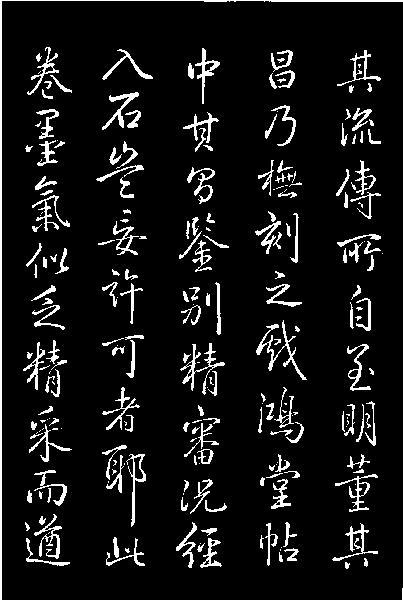 其流傳所自至明董其
昌乃橅刻之戲鴻堂帖
中其昌鑒別精審況經
入石豈妄許可者耶此
卷墨氣似乏精采而遒